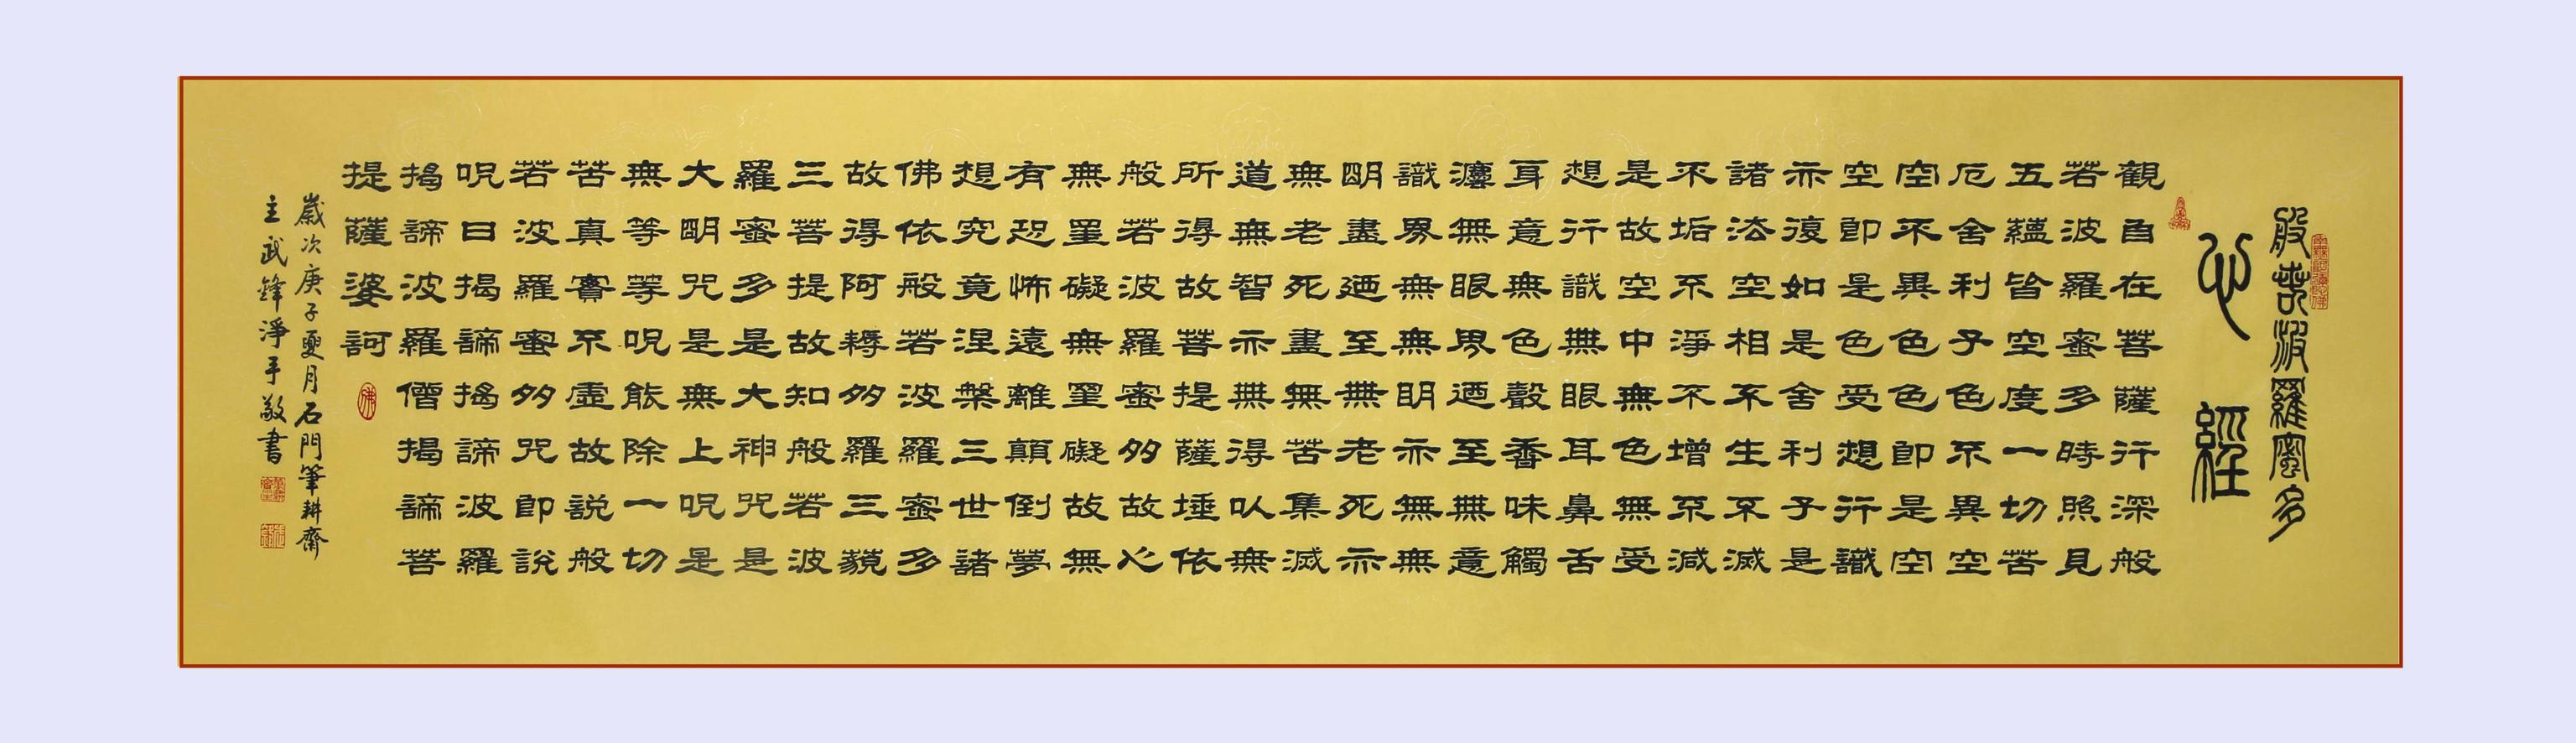 般若波羅蜜多
心經
觀自在菩薩行深般
若波羅蜜多時照見
五蘊皆空度一切苦
厄舍利子色不異空
空不異色色即是空
空即是色受想行識
亦復如是舍利子是
諸法空相不生不滅
不垢不淨不增不減
是故空中無色無受
想行識無眼耳鼻舌
身意無色聲香味觸
灋無眼界廼至無意
識界無無明亦無無
明盡廼至無老死亦
無老死盡無苦集滅
道無智亦無得以無
所得故菩提薩埵依
般若波羅蜜多故心
無罣礙無罣礙故無
有恐怖遠離顛倒夢
想究竟涅槃三世諸
佛依般若波羅蜜多
故得阿耨多羅三藐
三菩提故知般若波
羅蜜多是大神咒是
大明咒是無上呪是
無等等呪能除一切
苦真實不虛故說般
若波羅蜜多咒即說
呪曰揭諦揭諦波羅
揭諦波羅僧揭諦菩
提薩婆訶
佛
歲次庚子夏月石門筆耕齋
主武鋒淨手敬書